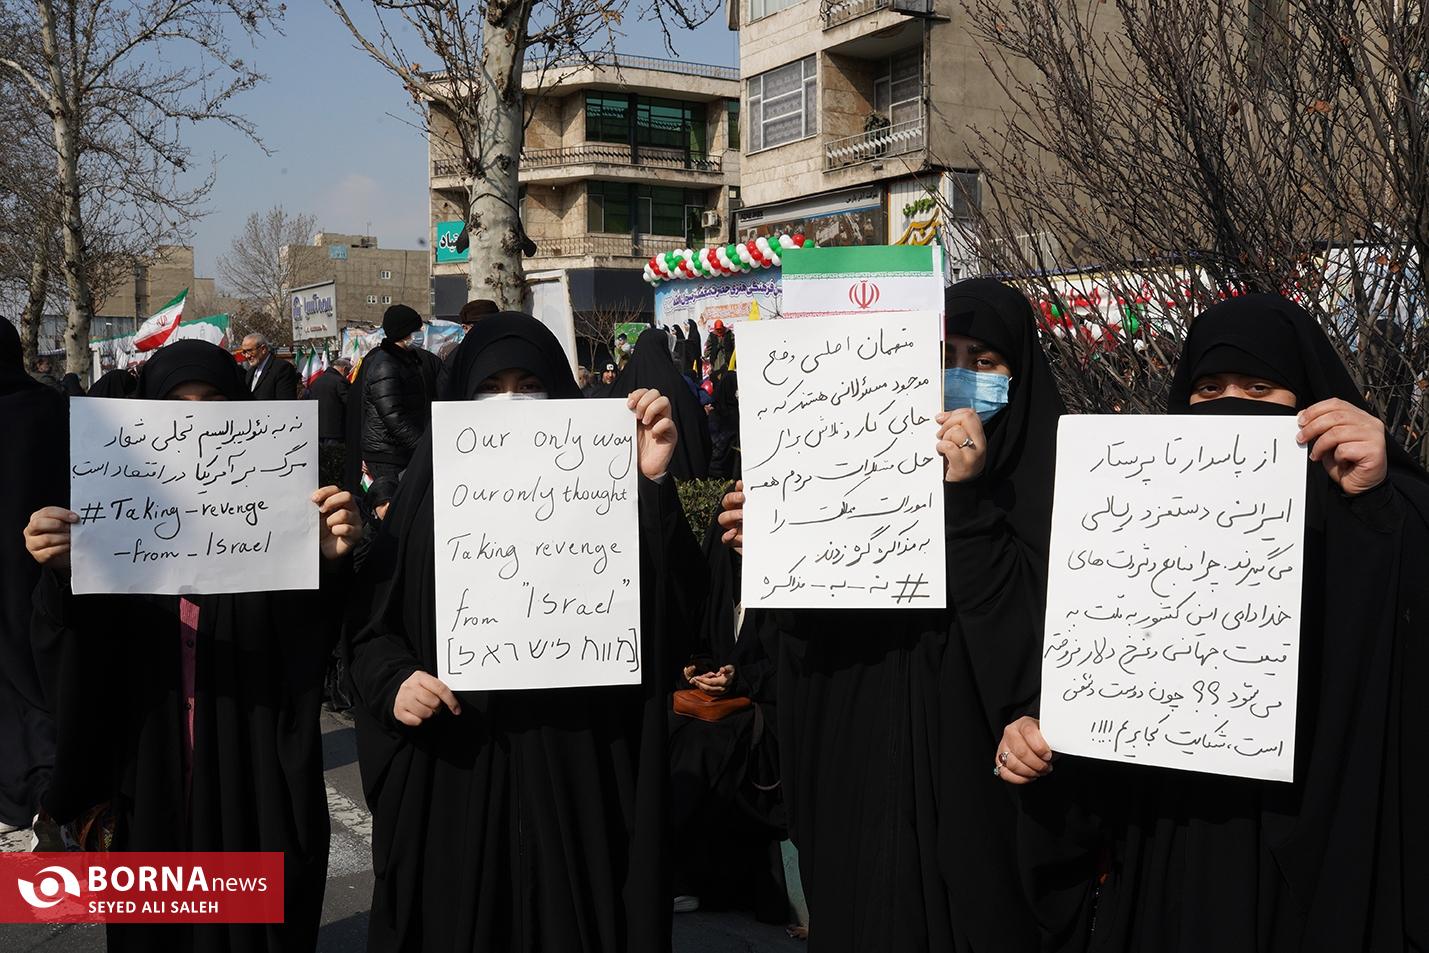 نه به نئولیبرالیسم تجلی شعار
مرگ بر آمریکا در اقتصاد است
# Taking-revenge
-from-Israel
Our only way
Our only thought
Taking revenge
from "Israel"
متهمان اصلی وضع
موجود مسئولانی هستند که به
جای کار و تلاش برای
حل مشکلات مردم همه
امورات مملکت را
به مذاکره گره زدند
# نه_به_مذاکره
از پاسدار تا پرستار
ایرانی دستمزد ریالی
می‌گیرند. چرا منابع و ثروت‌های
خدادادی این کشور به ملت به
قیمت جهانی و نرخ دلار فروخته
می‌شود؟؟ چون دوست دشمن
است، شکایت کجا بریم!!!!
BORNAnews
SEYED ALI SALEH